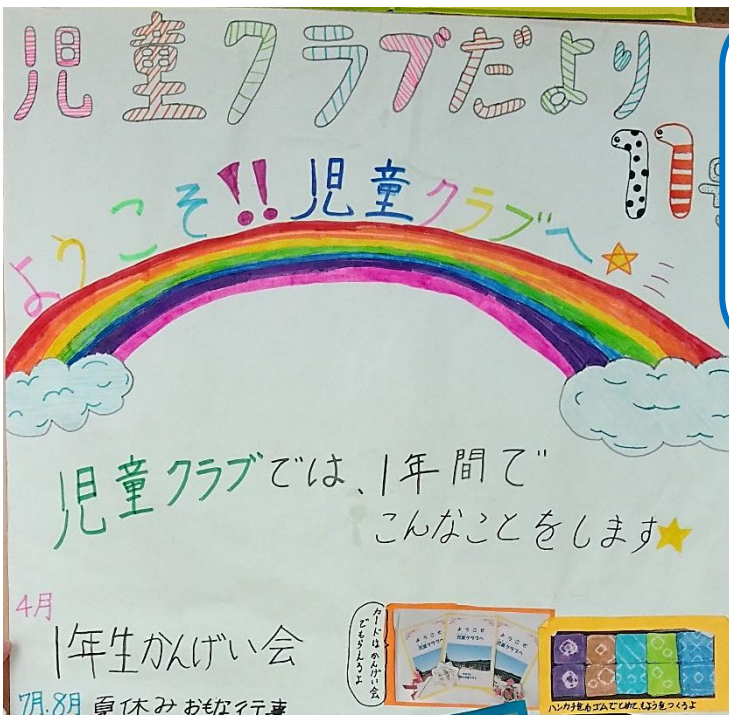 児童クラブだより
11号
ようこそ!!児童クラブへ
児童クラブでは、1年間で
こんなことをします
4月
1年生かんげい会
カードはかんげい会
でもらえるよ
ようこそ
児童クラブへ
ようこそ
児童クラブへ
ようこそ
児童クラブへ
7月.8月 夏休み おもな行事
ハンカチをわゴムでとめて、もようをつくるよ